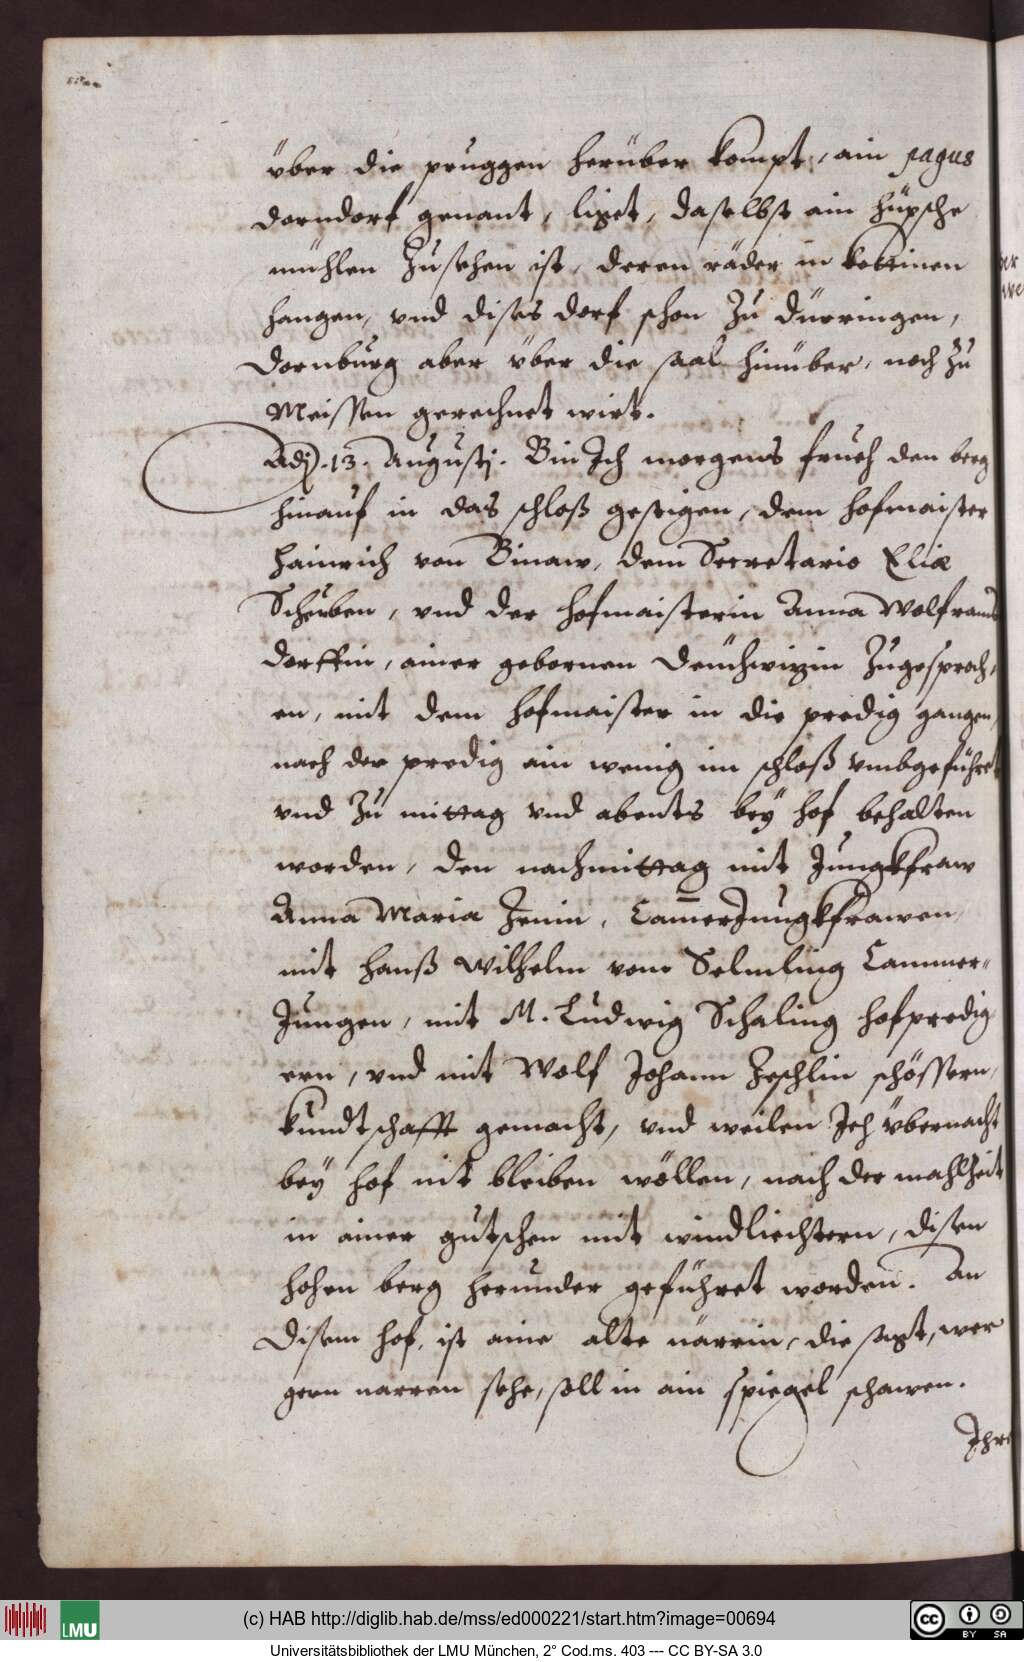 über die pruggen herüber kompt, ain pagus
dorndorf genant, ligt, daselbst ain hüpsche
mühlen zusehen ist, deren räder in kettinen
hangen, vnd dises dorf schon zu dürringen,
Dornburg aber über die saal hinüber, noch zu
Meissen gerechnet wirt.
Adj. 13. Augustj. Bin Ich morgens frueh den berg
hinauf in das schloß gestigen, dem hofmaister
Hainrich von Binaw, dem Secretario Eliæ
Scherben, vnd der hofmaisterin Anna Wolframs
dorffin, ainer gebornen Deüchwizin zugesproch,
en, mit dem hofmaister in die predig gangen,
nach der predig ain wenig im schloß vmbgeführet
vnd zu mittag vnd abents bey hof behalten
worden, den nachmittag mit Jungkfraw
Anna Maria Zenin, Cam̄erJungkfrawen,
mit Hanß Wilhelm vom Selmling Cammer-
Jungen, mit M. Ludwig Schaling hofpredig
ern, vnd mit Wolf Johann Zeschlin schössern,
kundtschafft gemacht, vnd weilen Ich übernacht
bey hof nit bleiben wöllen, nach der mahlzeit
in ainer gutschen mit windliechtern, disen
hohen berg herunder geführet worden. An
disem hof, ist aine alte närrin, die sagt, wer
gern narren sehe, soll in ain spiegel schawen.
Ihre
(c) HAB http://diglib.hab.de/mss/ed000221/start.htm?image=00694
LMU
cc BY SA
Universitätsbibliothek der LMU München, 2° Cod.ms. 403 --- CC BY-SA 3.0